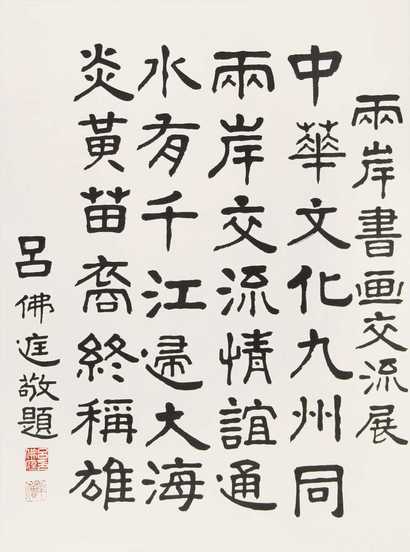 兩岸書画交流展
中華文化九州同
兩岸交流情誼通
水有千江歸大海
炎黃苗裔終稱雄
呂佛庭敬題